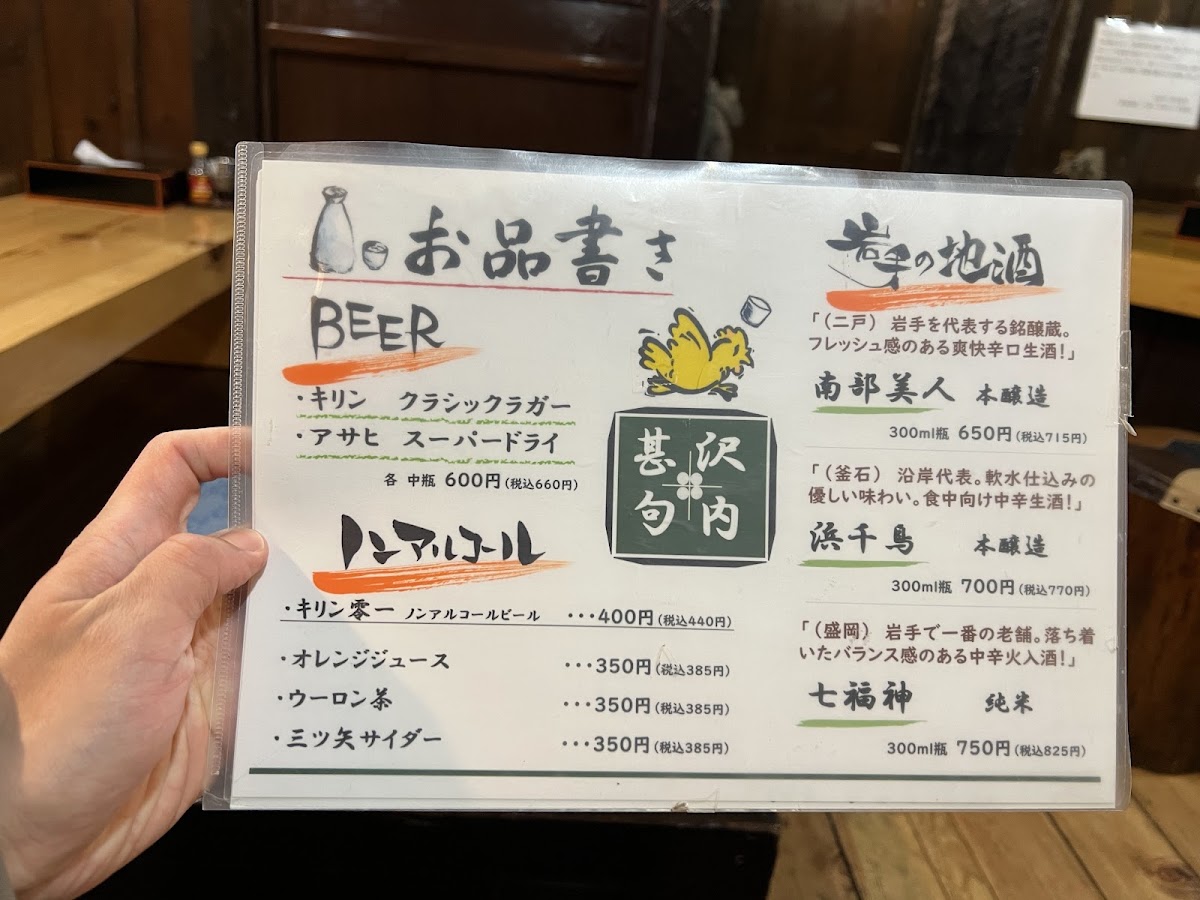 お品書き
BEER
・キリン クラシックラガー
・アサヒ スーパードライ
各 中瓶 600円(税込660円)
ノンアルコール
・キリン零一 ノンアルコールビール ・・・400円(税込440円)
・オレンジジュース ・・・350円(税込385円)
・ウーロン茶 ・・・350円(税込385円)
・三ツ矢サイダー ・・・350円(税込385円)
沢内
甚句
岩手の地酒
「(二戸) 岩手を代表する銘醸蔵。
フレッシュ感のある爽快辛口生酒!」
南部美人 本醸造
300ml瓶 650円(税込715円)
「(釜石) 沿岸代表。軟水仕込みの
優しい味わい。食中向け中辛生酒!」
浜千鳥 本醸造
300ml瓶 700円(税込770円)
「(盛岡) 岩手で一番の老舗。落ち着
いたバランス感のある中辛火入酒!」
七福神 純米
300ml瓶 750円(税込825円)